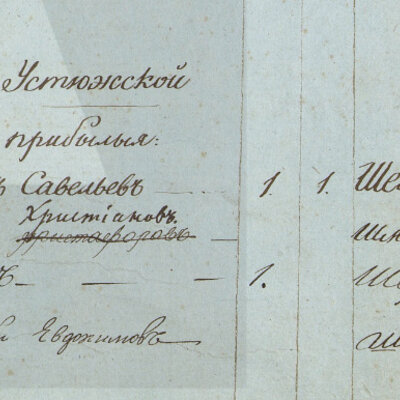 Устюжской
прибылыя:
ъ Савельевъ — 1. 1. Ше
Христіановъ.
Христофоровъ — шн
ъ — — — 1.
Евдокимовъ — ш